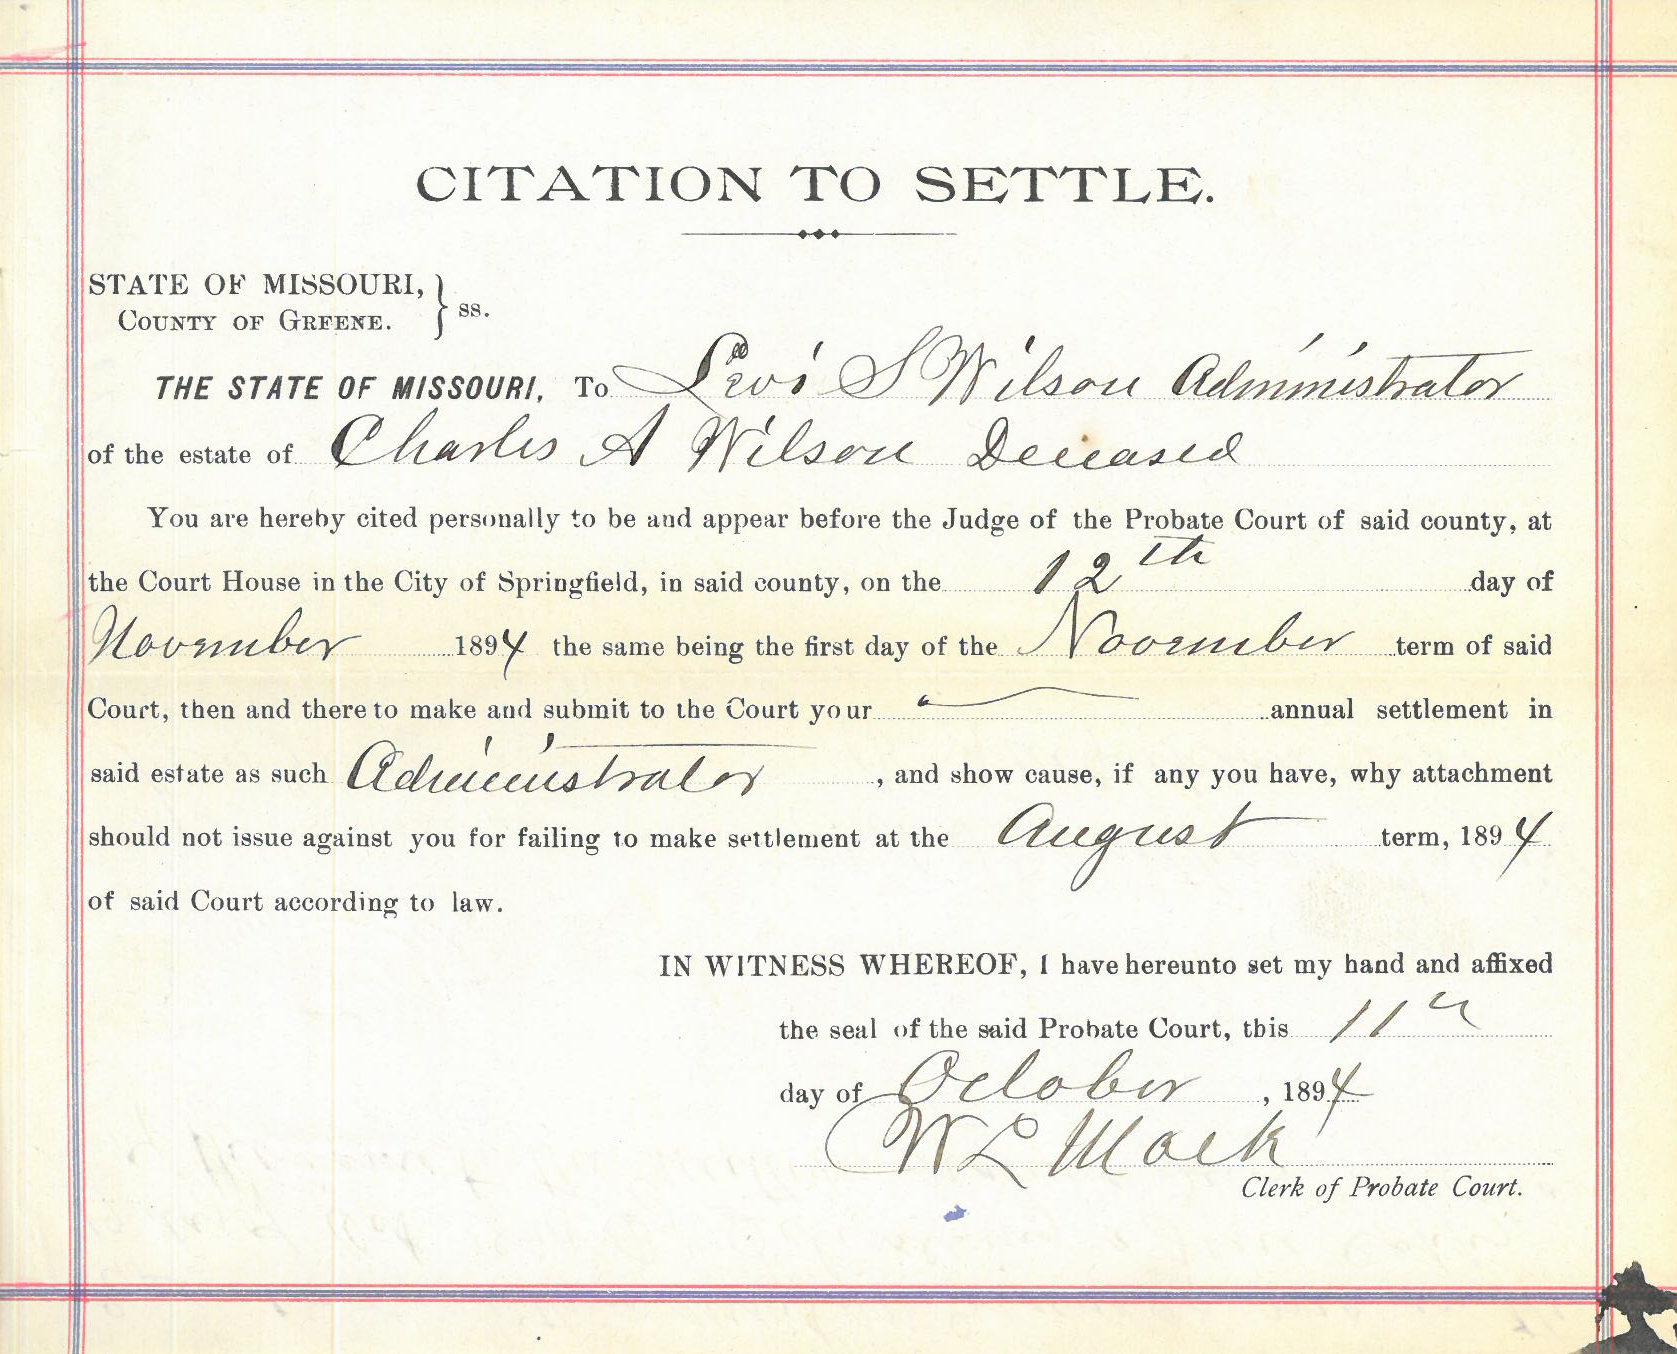 CITATION TO SETTLE.
STATE OF MISSOURI,
COUNTY OF GREENE. } ss.
THE STATE OF MISSOURI, To Levi S Wilson Administrator
of the estate of Charles A Wilson Deceased
You are hereby cited personally to be and appear before the Judge of the Probate Court of said county, at
the Court House in the City of Springfield, in said county, on the 12th day of
November 1894 the same being the first day of the November term of said
Court, then and there to make and submit to the Court your annual settlement in
said estate as such Administrator, and show cause, if any you have, why attachment
should not issue against you for failing to make settlement at the August term, 1894
of said Court according to law.
IN WITNESS WHEREOF, I have hereunto set my hand and affixed
the seal of the said Probate Court, this 11th
day of October, 1894
W L Mack
Clerk of Probate Court.